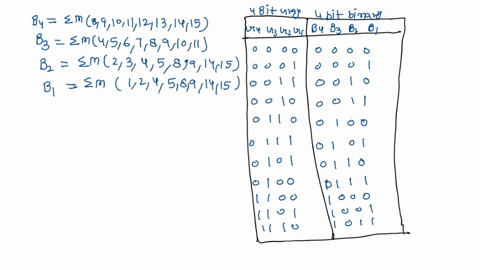 B4 = Σm(8,9,10,11,12,13,14,15)
B3 = Σm(4,5,6,7,8,9,10,11)
B2 = Σm(2,3,4,5,8,9,14,15)
B1 = Σm(1,2,4,5,8,9,14,15)
4 Bit 4 bit binary
G4 G3 G2 G1 B4 B3 B2 B1
0 0 0 0 0 0 0 0
0 0 0 1 0 0 0 1
0 0 1 1 0 0 1 0
0 0 1 0 0 0 1 1
0 1 1 0 0 1 0 0
0 1 1 1 0 1 0 1
0 1 0 1 0 1 1 0
0 1 0 0 0 1 1 1
1 1 0 0 1 0 0 0
1 1 0 1 1 0 0 1
1 1 1 0 1 0 1 1